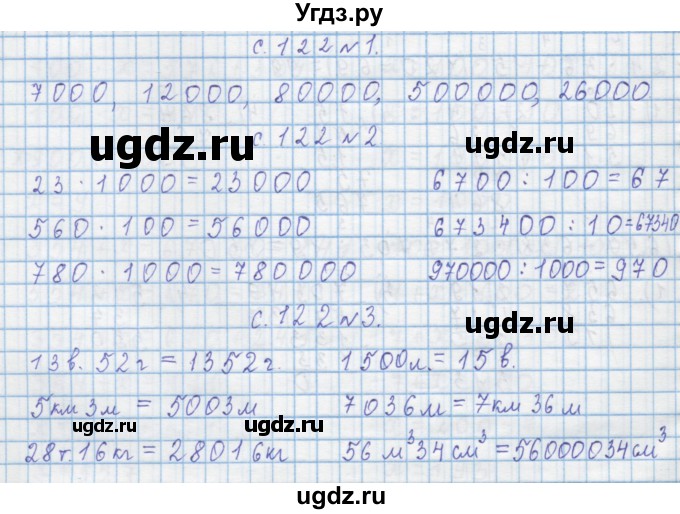 Угдз.ру
с. 122 №1.
7000, 12000, 80000, 500000, 26000
с. 122 №2
23 · 1000 = 23000 6700 : 100 = 67
560 · 100 = 56000 673400 : 10 = 67340
780 · 1000 = 780000 970000 : 1000 = 970
с. 122 №3.
13в. 52г = 1352г. 1500л. = 15в.
5км 3м = 5003м 7036м = 7км 36м
28т.16кг = 28016кг 56м³34см³ = 56000034см³
ugdz.ru
ugdz.ru
ugdz.ru
ugdz.ru
ugdz.ru
ugdz.ru